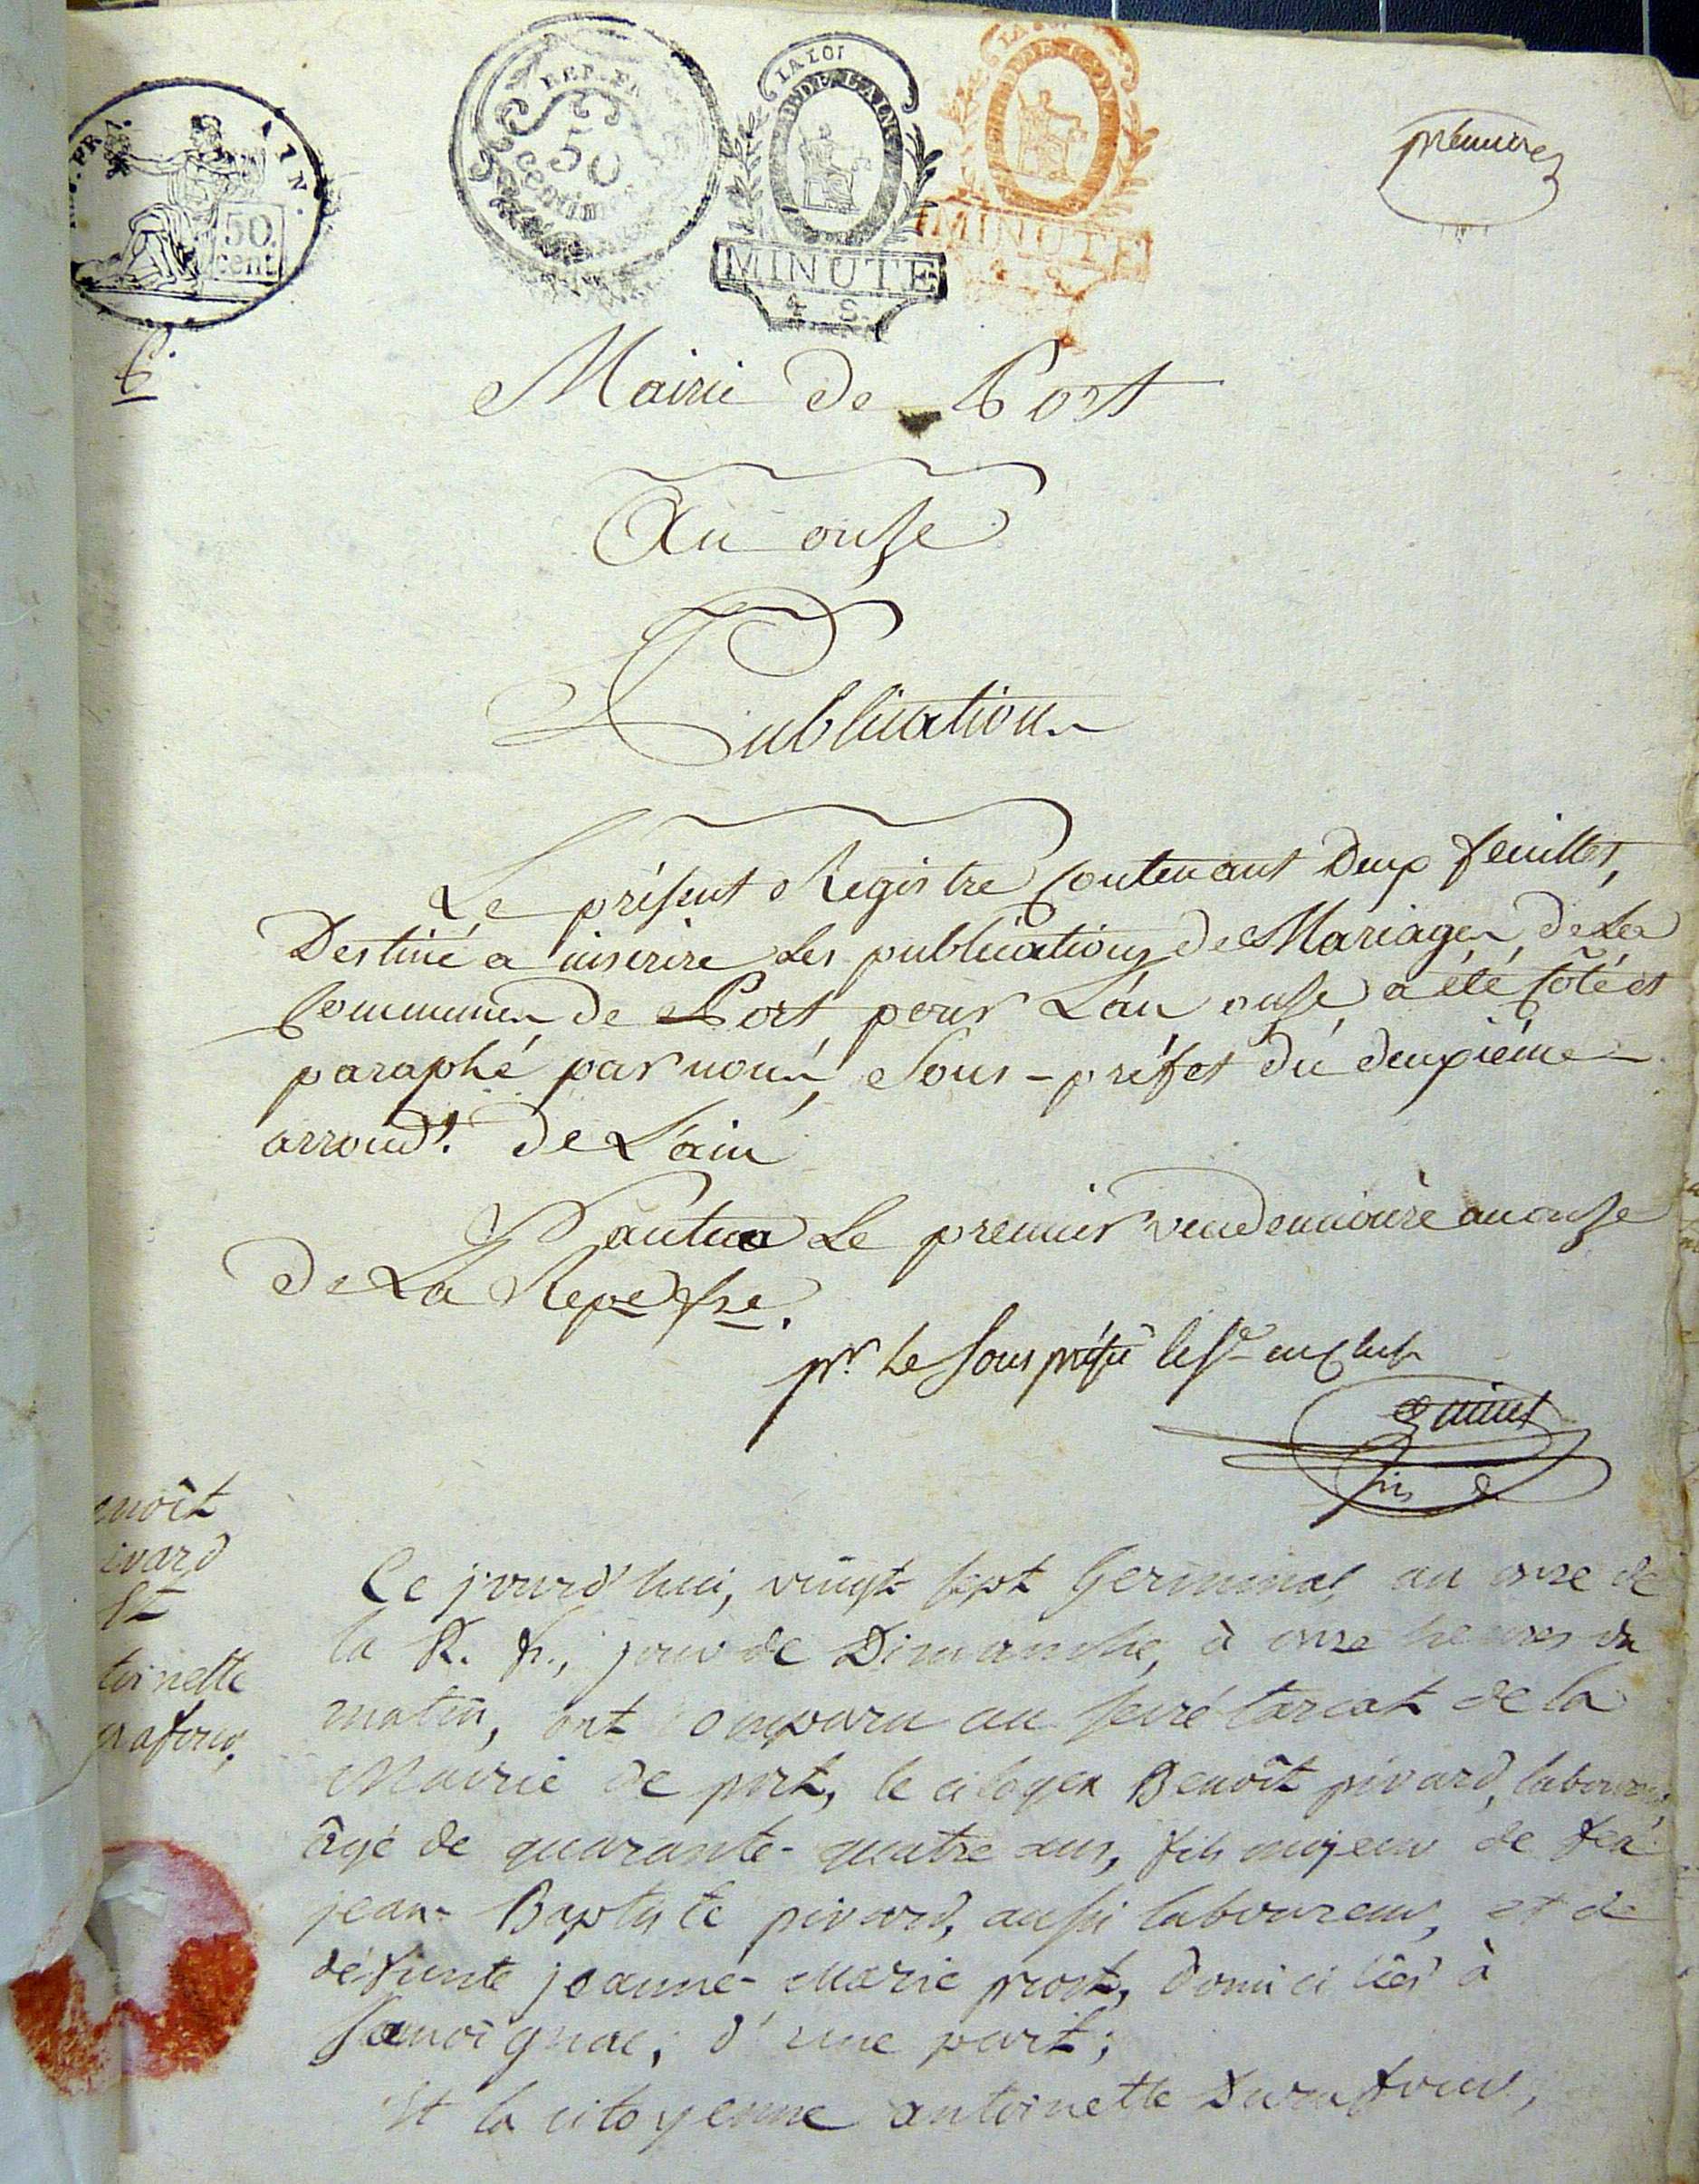 REP. FRA.
AIN.
50.
cent.
REP. FRA
50
centimes
LA LOI
D. DE L'AIN
MINUTE
4 S.
MINUTE
4 S.
premiere
Mairie de Port
An onze
Publication
Le présent Registre Contenant Deux feuilles,
Destiné a inscrire Les publications de Mariages de La
Commune de Port pour L'an onze, a été Côté et
paraphé par nous, Sous-préfet du deuxième
arrondt. de L'ain
Nantua Le premier vendemiaire an onze
de La Repe. fse.
pr. Le Sous préfet
enoît
ivard
Et
toinette
rafour,
Ce jourd'hui, vingt-sept Germinal, an onze de
la R. fr., jour de Dimanche, à onze heures du
matin, ont comparu au secrétariat de la
Mairie de port, le citoyen Benoît pivard, laboureur,
âgé de quarante-quatre ans, fils majeur de feu
jean-Baptiste pivard, aussi laboureur, et de
défunte jeanne-marie prost, domiciliés à
Samoignac, d'une part;
Et la citoyenne antoinette Durafour,